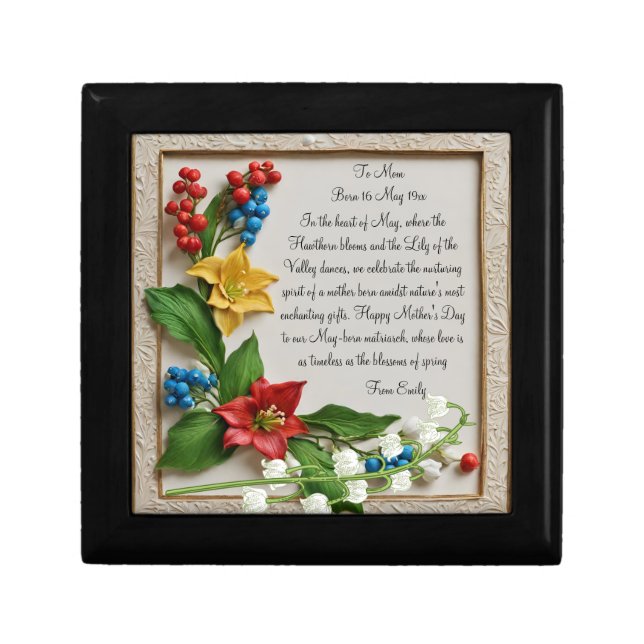 To Mom
Born 16 May 19xx
In the heart of May, where the
Hawthorn blooms and the Lily of the
Valley dances, we celebrate the nurturing
spirit of a mother born amidst nature's most
enchanting gifts. Happy Mother's Day
to our May-born matriarch, whose love is
as timeless as the blossoms of spring
From Emily